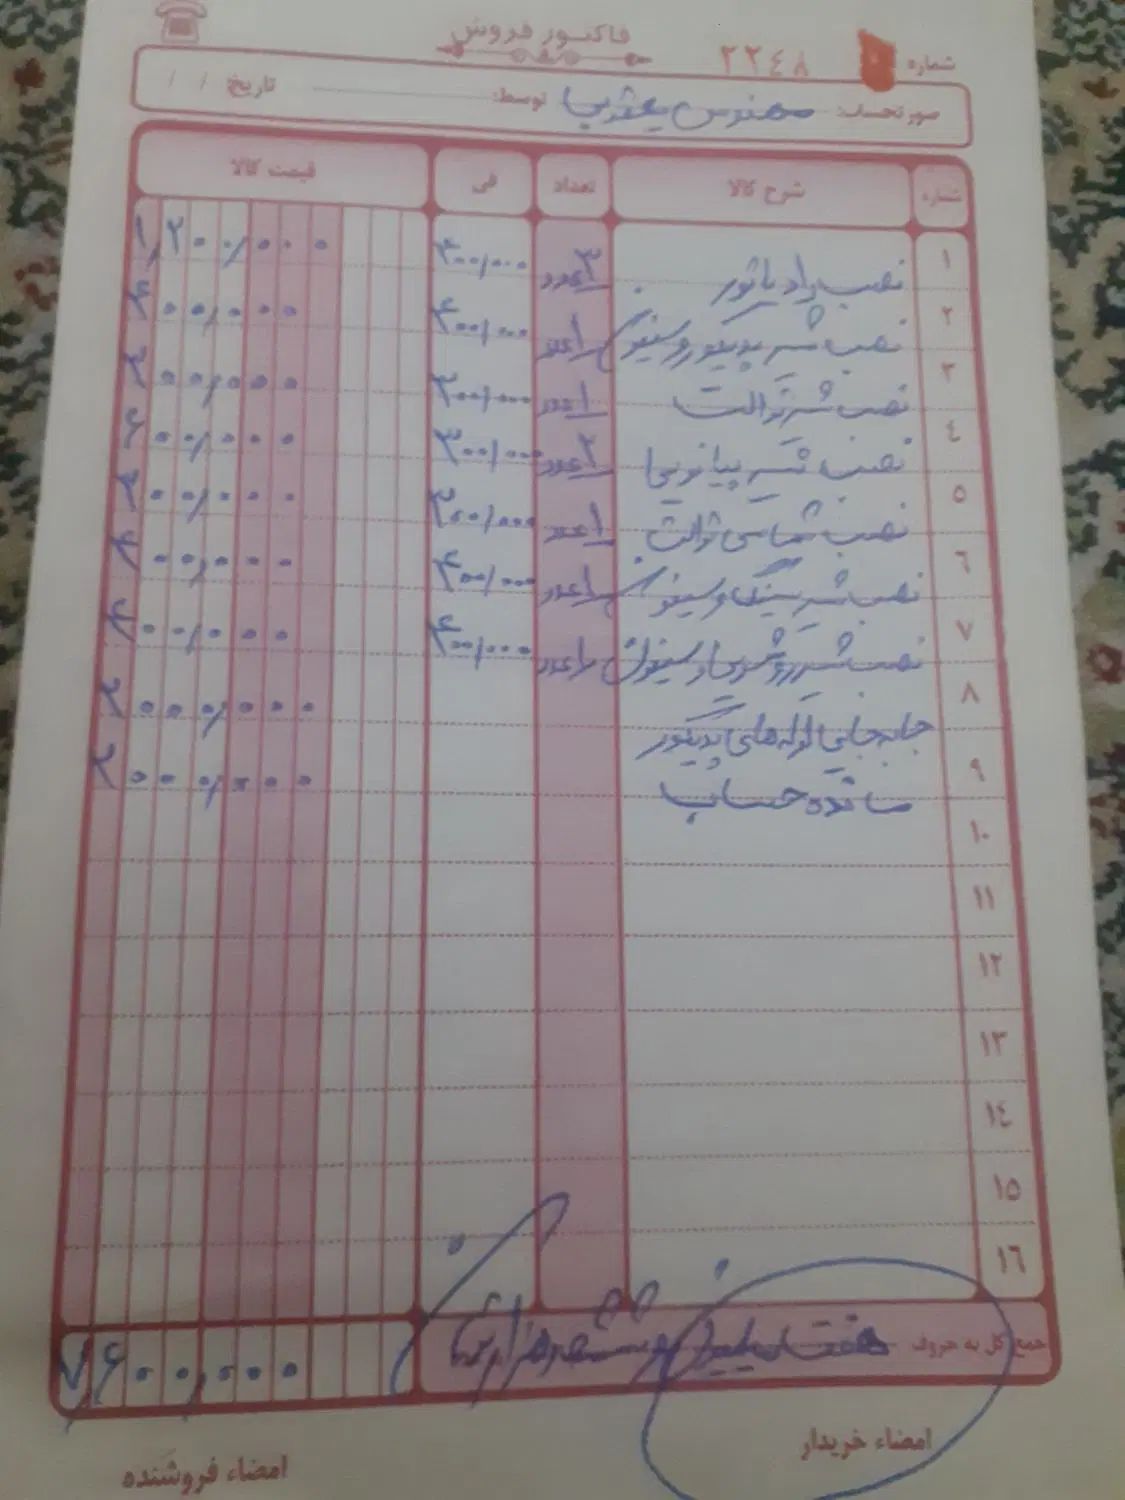 فاکتور فروش
شماره ۲۲۴۸
صورتحساب: مهندس یعقوبی توسط: تاریخ: / /
شماره شرح کالا تعداد فی قیمت کالا
۱ نصب رادیاتور ۳ عدد ۴۰۰/۰۰۰ ۱,۲۰۰/۰۰۰
۲ نصب شیر پدیکور و سیفون ۱ عدد ۴۰۰/۰۰۰ ۴۰۰/۰۰۰
۳ نصب شیر توالت ۱ عدد ۳۰۰/۰۰۰ ۳۰۰/۰۰۰
۴ نصب شیر پیانویی ۲ عدد ۳۰۰/۰۰۰ ۶۰۰/۰۰۰
۵ نصب شاسی توالت ۱ عدد ۳۰۰/۰۰۰ ۳۰۰/۰۰۰
۶ نصب شیر سینک و سیفون ۱ عدد ۴۰۰/۰۰۰ ۴۰۰/۰۰۰
۷ نصب شیر روشویی و سیفون ۱ عدد ۴۰۰/۰۰۰ ۴۰۰/۰۰۰
۸ جابه‌جایی لوله‌های پدیکور ۲۰۰۰/۰۰۰
۹ مانده حساب ۲۰۰۰/۰۰۰
۱۰
۱۱
۱۲
۱۳
۱۴
۱۵
۱۶
جمع کل به حروف هفت میلیون و ششصد هزار تومان ۷,۶۰۰,۰۰۰
امضاء خریدار
امضاء فروشنده